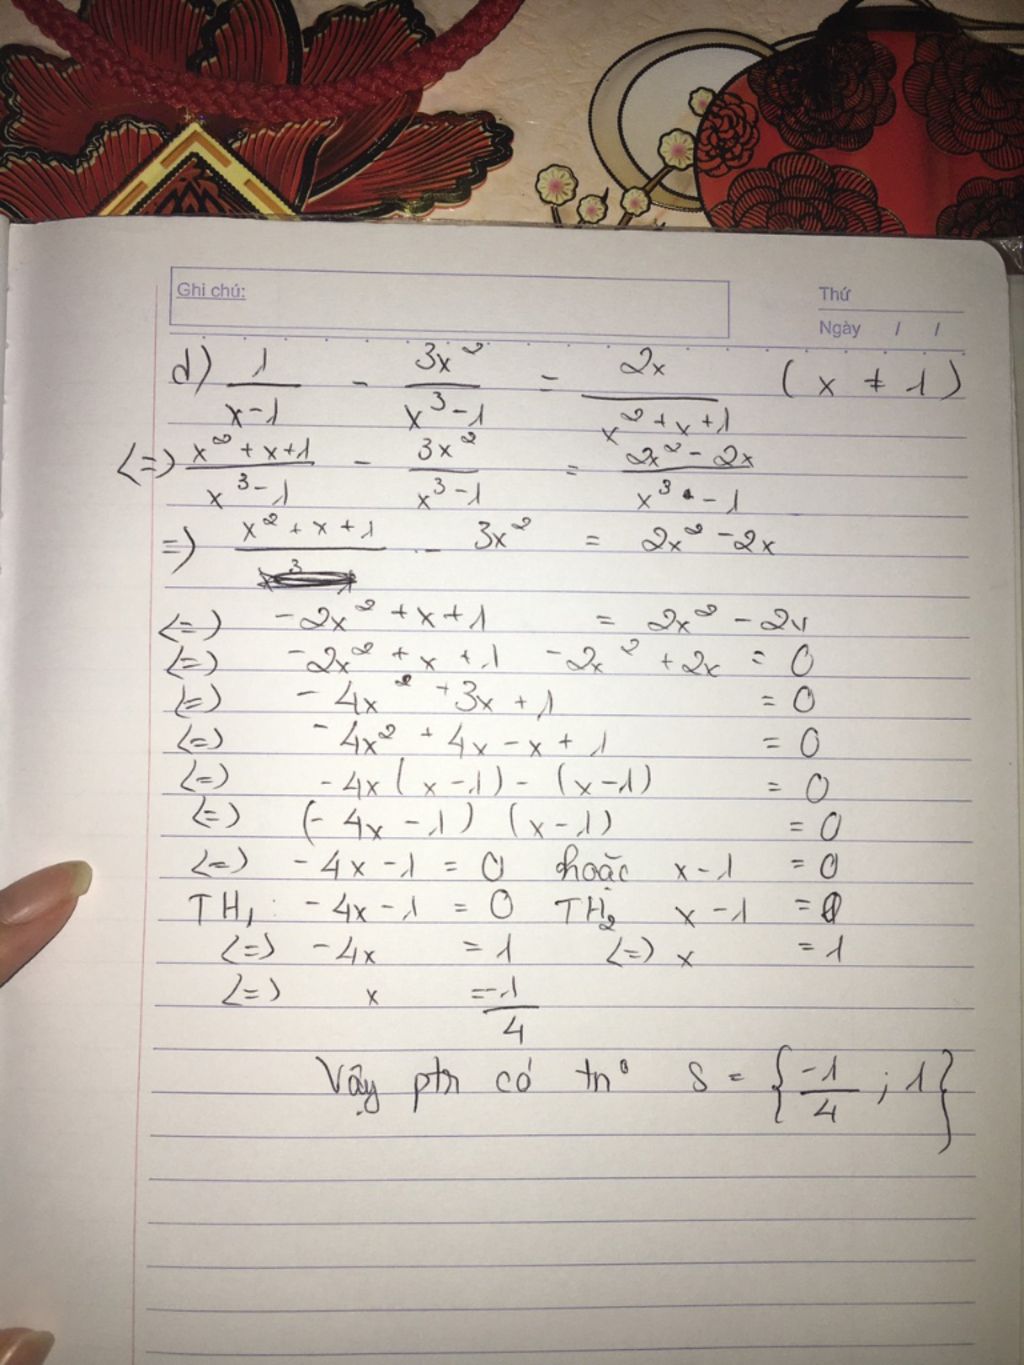 Ghi chú:
Thứ
Ngày / /
d) 1/(x-1) - 3x²/(x³-1) = 2x/(x²+x+1) (x ≠ 1)
<=> (x²+x+1)/(x³-1) - 3x²/(x³-1) = (2x²-2x)/(x³-1)
=> x²+x+1 - 3x² = 2x²-2x
<=> -2x²+x+1 = 2x²-2x
<=> -2x²+x+1 -2x²+2x = 0
<=> -4x²+3x+1 = 0
<=> -4x²+4x-x+1 = 0
<=> -4x(x-1)-(x-1) = 0
<=> (-4x-1)(x-1) = 0
<=> -4x-1 = 0 hoặc x-1 = 0
TH₁: -4x-1 = 0 TH₂ x-1 = 0
<=> -4x = 1 <=> x = 1
<=> x = -1/4
Vậy ptr có tn° S = {-1/4 ; 1}